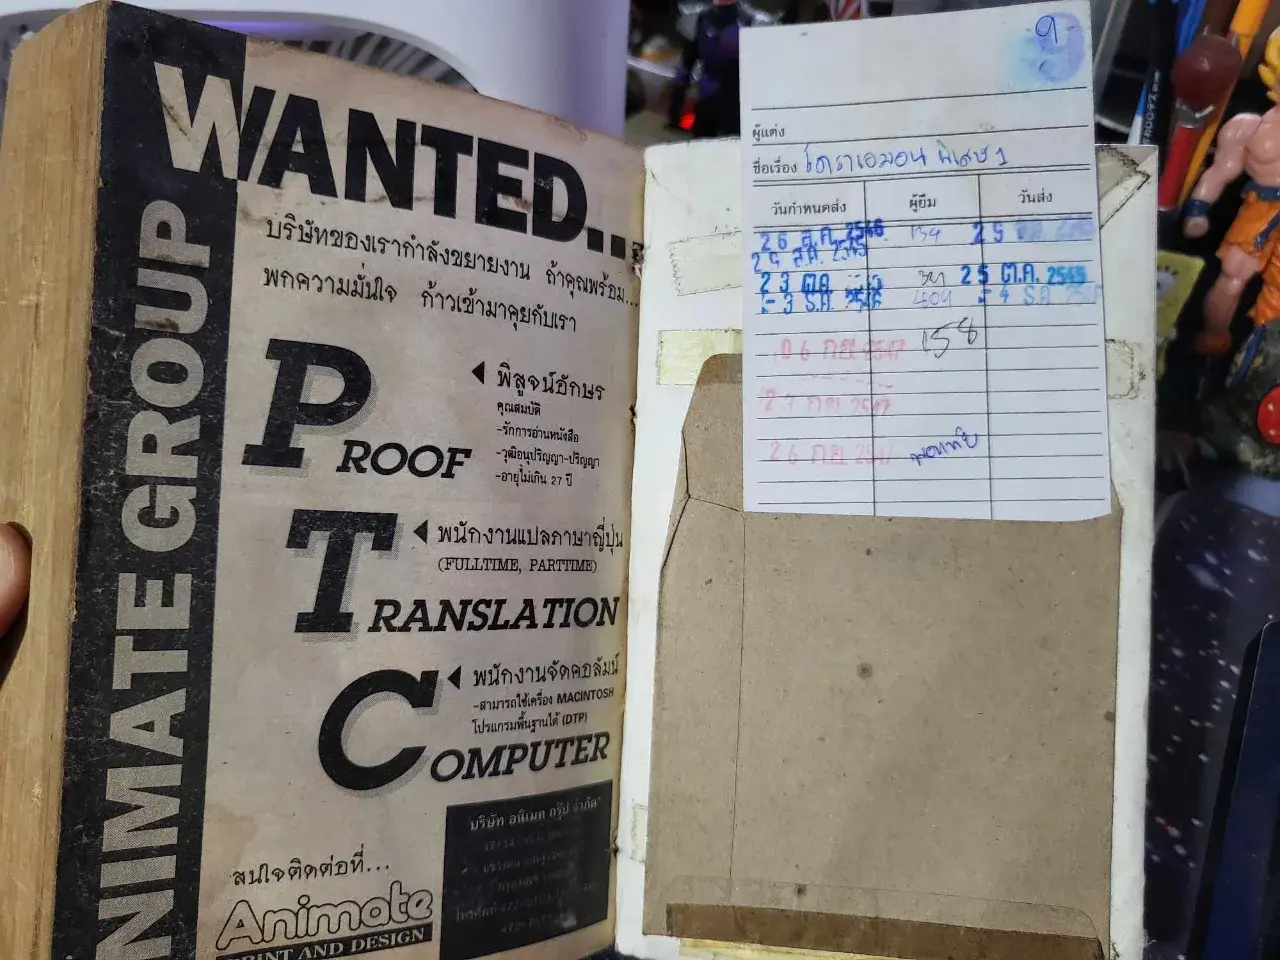 ANIMATE GROUP
WANTED...
บริษัทของเรากำลังขยายงาน ถ้าคุณพร้อม...
พกความมั่นใจ ก้าวเข้ามาคุยกับเรา
PROOF
พิสูจน์อักษร
คุณสมบัติ
-รักการอ่านหนังสือ
-วุฒิอนุปริญญา-ปริญญา
-อายุไม่เกิน 27 ปี
TRANSLATION
พนักงานแปลภาษาญี่ปุ่น
(FULLTIME, PARTTIME)
COMPUTER
พนักงานจัดคอลัมน์
-สามารถใช้เครื่อง MACINTOSH
โปรแกรมพื้นฐานได้ (DTP)
สนใจติดต่อที่...
Animate
PRINT AND DESIGN
บริษัท อนิเมท กรุ๊ป จำกัด
ผู้แต่ง
ชื่อเรื่อง โดราเอมอน พิเศษ 1
วันกำหนดส่ง ผู้ยืม วันส่ง
26 ส.ค. 2546 139 29
29 ส.ค. 2545
23 ต.ค. 25 ต.ค. 2545
-3 ธ.ค. 2546 404 -4 ธ.ค.
06 ก.ย. 2547 158
23 ก.ย. 2547
26 ก.ย. 2547